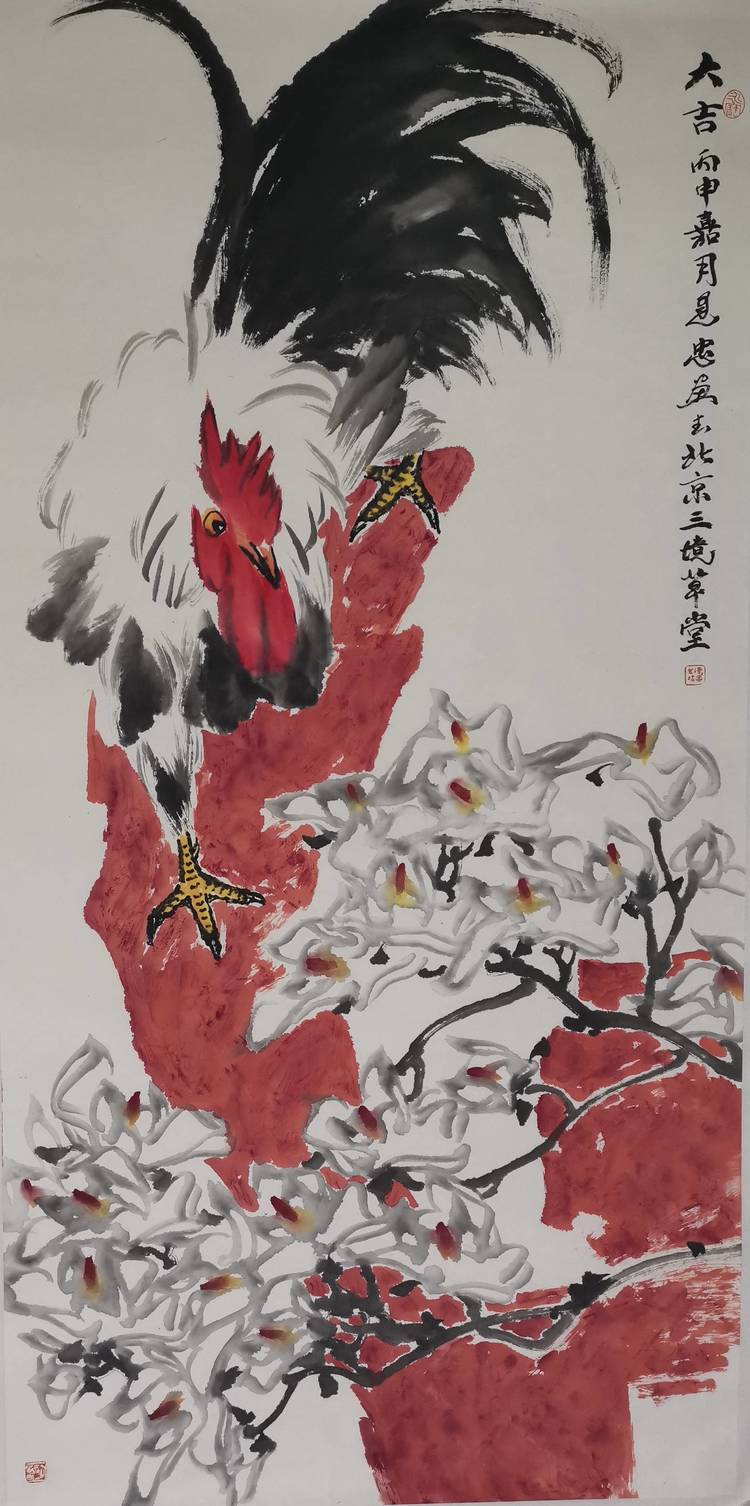 大吉 丙申嘉月 忠画于北京三境草堂